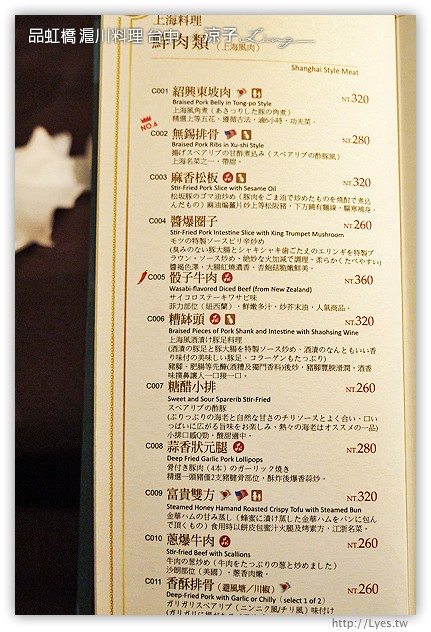 品虹橋 滬川料理 台中
涼子 Living
上海料理
鮮肉類（上海風肉）
Shanghai Style Meat
C001 紹興東坡肉 NT.320
Braised Pork Belly in Tong-po Style
上海風角煮（あさりした豚の角煮）
精選上等五花，遵循古法，滷6小時，功夫菜。
NO.4
C002 無錫排骨 NT.280
Braised Pork Ribs in Xu-shi Style
揚げスペアリブの甘酢煮込み（スペアリブの酢豚風）
上海名菜之一，帶甜。
C003 麻香松板 NT.320
Stir-Fried Pork Slice with Sesame Oil
松坂豚のゴマ油炒め（豚肉をごま油で炒めたものを焼酎で煮込
んだもの）麻油煸薑片炒上等松阪豬，下方鋪有麵線，驅寒補身。
C004 醬爆圈子 NT.260
Stir-Fried Pork Intestine Slice with King Trumpet Mushroom
モツの特製ソースピリ辛炒め
(臭みのない豚大腸とシャキシャキ歯ごたえのエリンギを特製ブ
ラウン・ソース炒め・絶妙な火加減で調理・柔らかくたべやすい)
醬褐色澤，大腸紅燒濃香，杏鮑菇脆嫩鮮美。
C005 骰子牛肉 NT.360
Wasabi-flavored Diced Beef (from New Zealand)
サイコロステーキワサビ味
菲力部位（紐西蘭），鮮嫩多汁，炒芥末油，人氣商品。
C006 糟缽頭 NT.320
Braised Pieces of Pork Shank and Intestine with Shaohsing Wine
上海風酒漬け豚足料理
(酒漬の豚足と豚大腸を特製ソース炒め・酒漬のなんともいい香
り味付の美味しい豚足・コラーゲンもたっぷり)
豬腳、肥腸等先醃(酒糟及獨門香料)後炒，豬腳豐腴滑潤，酒香
味撲鼻讓人一口接一口。
C007 糖醋小排 NT.260
Sweet and Sour Sparerib Stir-Fried
スペアリブの酢豚
(ぷりっぷりの海老と自然な甘さのチリソースとよく合い、口い
っぱいに広がる旨味をお楽しみ・熱々の海老はオススメの一品)
小排口感Q勁，酸甜適中。
C008 蒜香狀元腿 NT.280
Deep Fried Garlic Pork Lollipops
骨付き豚肉（4本）のガーリック焼き
精選一頭豬僅2支豬腱骨部位，酥炸後爆香蒜炒。
C009 富貴雙方 NT.320
Steamed Honey Hamand Roasted Crispy Tofu with Steamed Bun
金華ハムの甘み蒸し（蜂蜜に漬け蒸した金華ハムをパンに包ん
で頂くもの）食用時以餅皮包蜜汁火腿及烤素方，江浙名菜。
C010 蔥爆牛肉 NT.260
Stir-fried Beef with Scallions
牛肉の葱炒め（牛肉をたっぷりの葱と炒めました）
沙朗部位（美國），蔥香肉嫩。
C011 香酥排骨（避風塘／川椒） NT.260
Deep-Fried Pork with Garlic or Chilly（select 1 of 2）
ガリガリスペアリブ（ニンニク風/チリ風）味付け
http://Lyes.tw